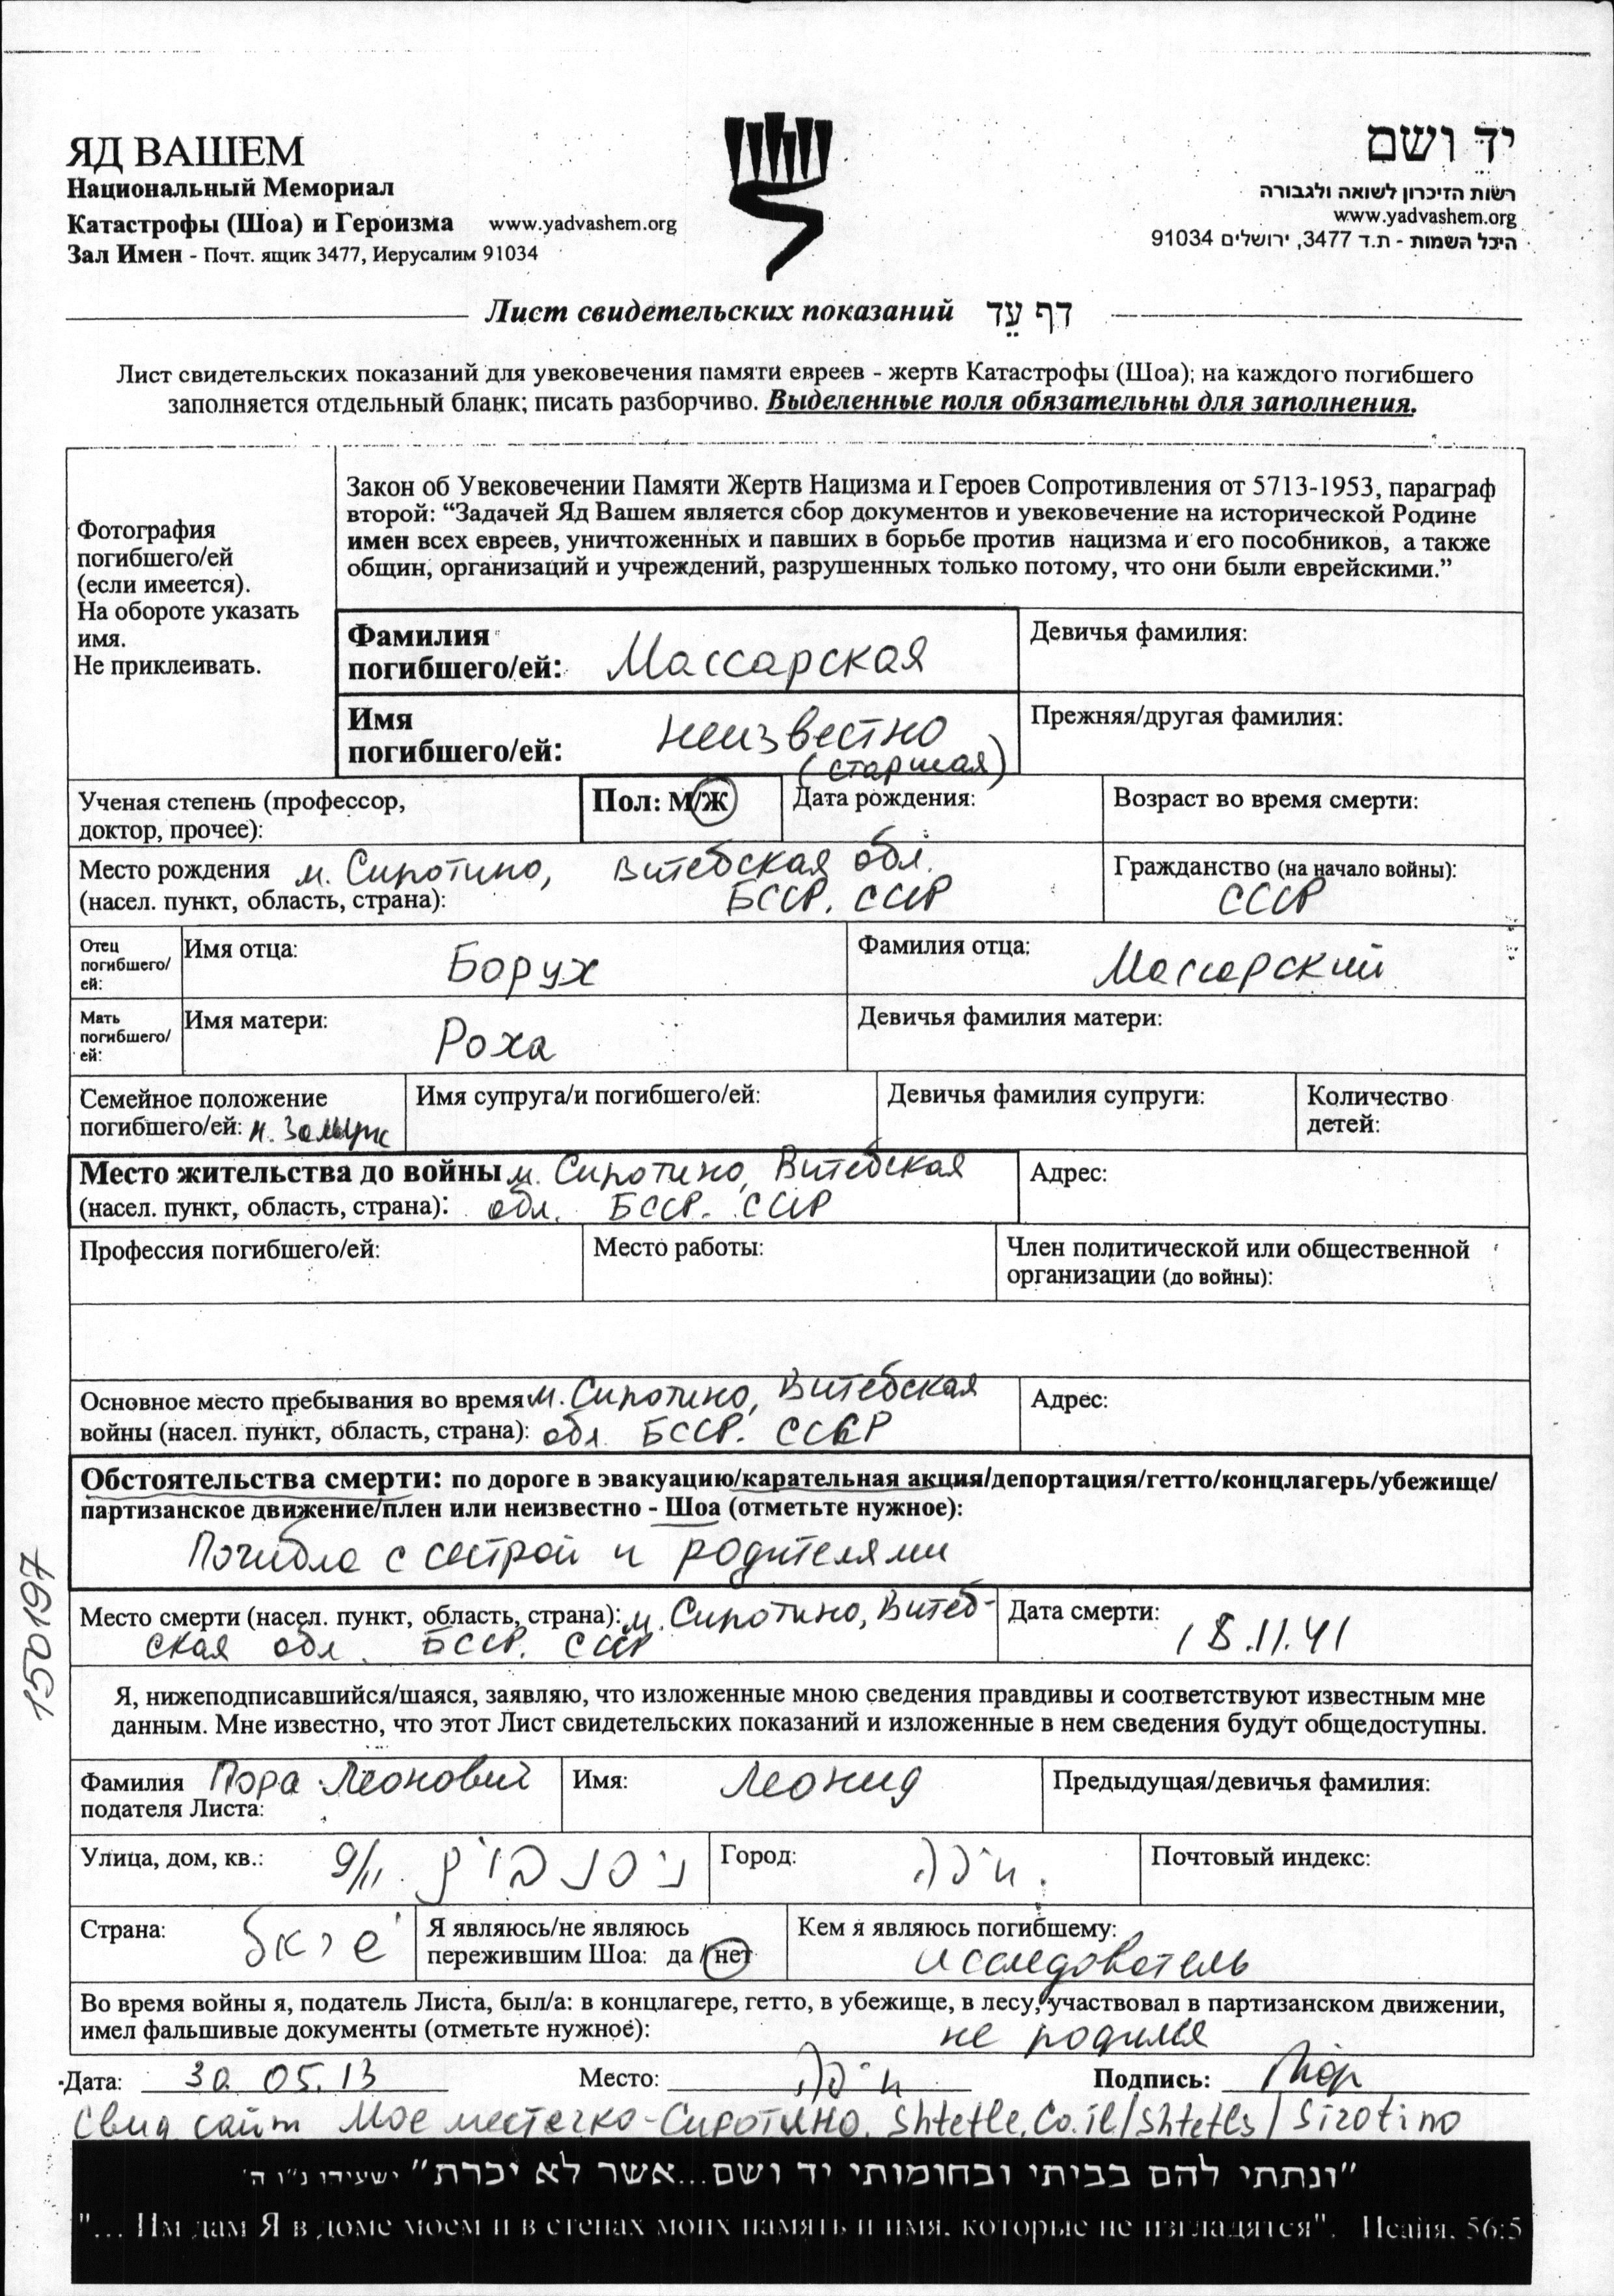 ЯД ВАШЕМ
Национальный Мемориал
Катастрофы (Шоа) и Героизма www.yadvashem.org
Зал Имен - Почт. ящик 3477, Иерусалим 91034
יד ושם
רשות הזיכרון לשואה ולגבורה
www.yadvashem.org
היכל השמות - ת.ד 3477, ירושלים 91034
Лист свидетельских показаний דף עֵד
Лист свидетельских показаний для увековечения памяти евреев - жертв Катастрофы (Шоа); на каждого погибшего
заполняется отдельный бланк; писать разборчиво. Выделенные поля обязательны для заполнения.
Фотография
погибшего/ей
(если имеется).
На обороте указать
имя.
Не приклеивать.
Закон об Увековечении Памяти Жертв Нацизма и Героев Сопротивления от 5713-1953, параграф
второй: “Задачей Яд Вашем является сбор документов и увековечение на исторической Родине
имен всех евреев, уничтоженных и павших в борьбе против нацизма и его пособников, а также
общин, организаций и учреждений, разрушенных только потому, что они были еврейскими.”
Фамилия
погибшего/ей: Массарская
Девичья фамилия:
Имя
погибшего/ей: неизвестно
(старшая)
Прежняя/другая фамилия:
Ученая степень (профессор,
доктор, прочее):
Пол: М/Ж
Дата рождения:
Возраст во время смерти:
Место рождения м. Сиротино, Витебская обл.
(насел. пункт, область, страна): БССР. СССР
Гражданство (на начало войны):
СССР
Отец
погибшего/
ей:
Имя отца: Борух
Фамилия отца: Массарский
Мать
погибшего/
ей:
Имя матери: Роха
Девичья фамилия матери:
Семейное положение
погибшего/ей: н. замуж
Имя супруга/и погибшего/ей:
Девичья фамилия супруги:
Количество
детей:
Место жительства до войны м. Сиротино, Витебская
(насел. пункт, область, страна): обл. БССР. СССР
Адрес:
Профессия погибшего/ей:
Место работы:
Член политической или общественной
организации (до войны):
Основное место пребывания во время м. Сиротино, Витебская
войны (насел. пункт, область, страна): обл. БССР. СССР
Адрес:
Обстоятельства смерти: по дороге в эвакуацию/карательная акция/депортация/гетто/концлагерь/убежище/
партизанское движение/плен или неизвестно - Шоа (отметьте нужное):
Погибла с сестрой и родителями
150197
Место смерти (насел. пункт, область, страна): м. Сиротино, Витеб-
ская обл. БССР. СССР
Дата смерти:
18.11.41
Я, нижеподписавшийся/шаяся, заявляю, что изложенные мною сведения правдивы и соответствуют известным мне
данным. Мне известно, что этот Лист свидетельских показаний и изложенные в нем сведения будут общедоступны.
Фамилия Пора-Леонович
подателя Листа:
Имя: Леонид
Предыдущая/девичья фамилия:
Улица, дом, кв.: 9/11
Город: חיפה
Почтовый индекс:
Страна:
Я являюсь/не являюсь
пережившим Шоа: да / нет
Кем я являюсь погибшему:
исследователь
Во время войны я, податель Листа, был/а: в концлагере, гетто, в убежище, в лесу, участвовал в партизанском движении,
имел фальшивые документы (отметьте нужное): не родился
Дата: 30.05.13 Место: חיפה Подпись:
Свид сайт Мое местечко-Сиротино. Shtetle.co.il/Shtetls/Sirotino
"ונתתי להם בביתי ובחומותי יד ושם...אשר לא יכרת" ישעיהו נ"ו ה'
"... Им дам Я в доме моем и в стенах моих память и имя, которые не изгладятся". Исайя, 56:5